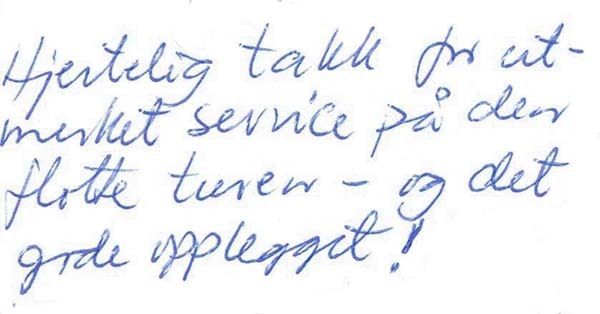 Hjertelig takk for ut-
merket service på den
flotte turen - og det
gode opplegget!